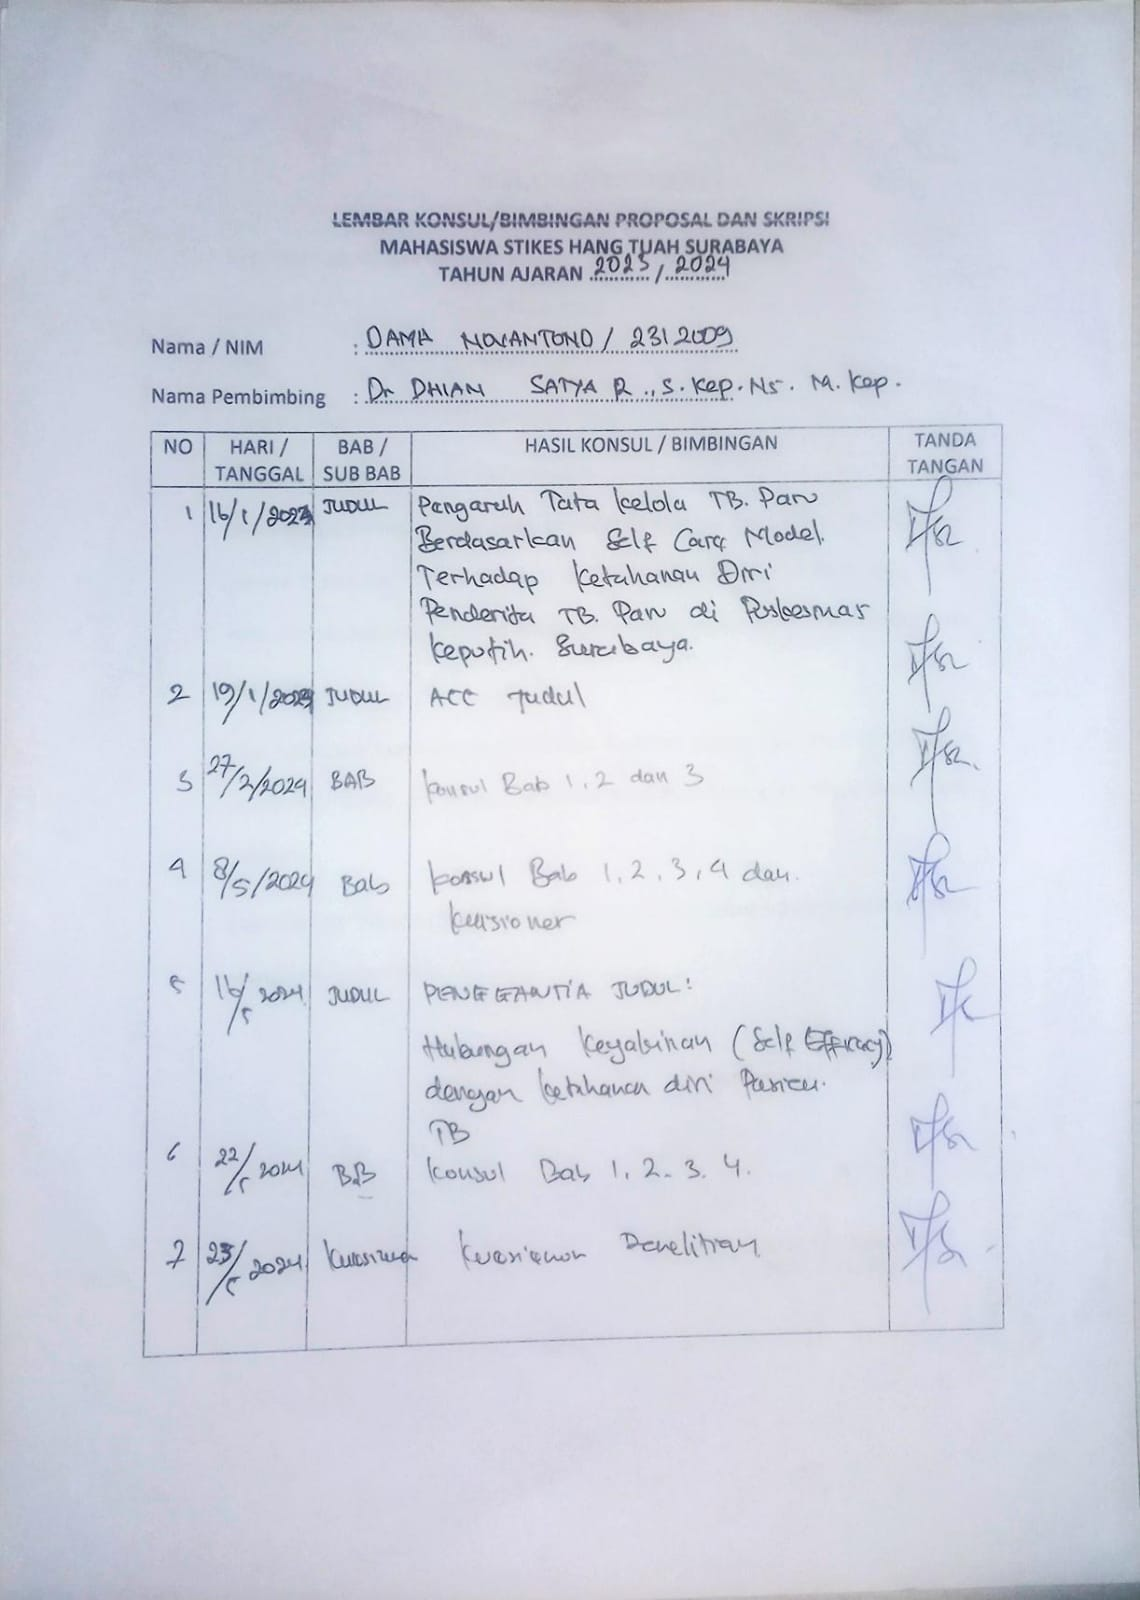 LEMBAR KONSUL/BIMBINGAN PROPOSAL DAN SKRIPSI
MAHASISWA STIKES HANG TUAH SURABAYA
TAHUN AJARAN 2023 / 2024
Nama / NIM : DAMA NOVANTONO / 2312009
Nama Pembimbing : Dr DHIAN SATYA R., S.Kep.Ns. M.Kep.
NO HARI / TANGGAL BAB / SUB BAB HASIL KONSUL / BIMBINGAN TANDA TANGAN
1 16/1/ JUDUL Pengaruh Tata Kelola TB. Paru
Berdasarkan Self Care Model.
Terhadap Ketahanan Diri
Penderita TB. Paru di Puskesmas
Keputih. Surabaya.
2 19/1/ JUDUL ACC Judul
3 27/2/2024 BAB Konsul Bab 1, 2 dan 3
4 8/5/2024 Bab Konsul Bab 1, 2, 3, 4 dan
Kuisioner
5 16/5 2024 JUDUL PENGGANTIA JUDUL:
Hubungan Keyakinan (Self Efficacy)
dengan ketahanan diri Pasien.
TB
6 22/5 2024 BAB Konsul Bab 1. 2. 3. 4.
7 /5 2024 Kuesioner Penelitian